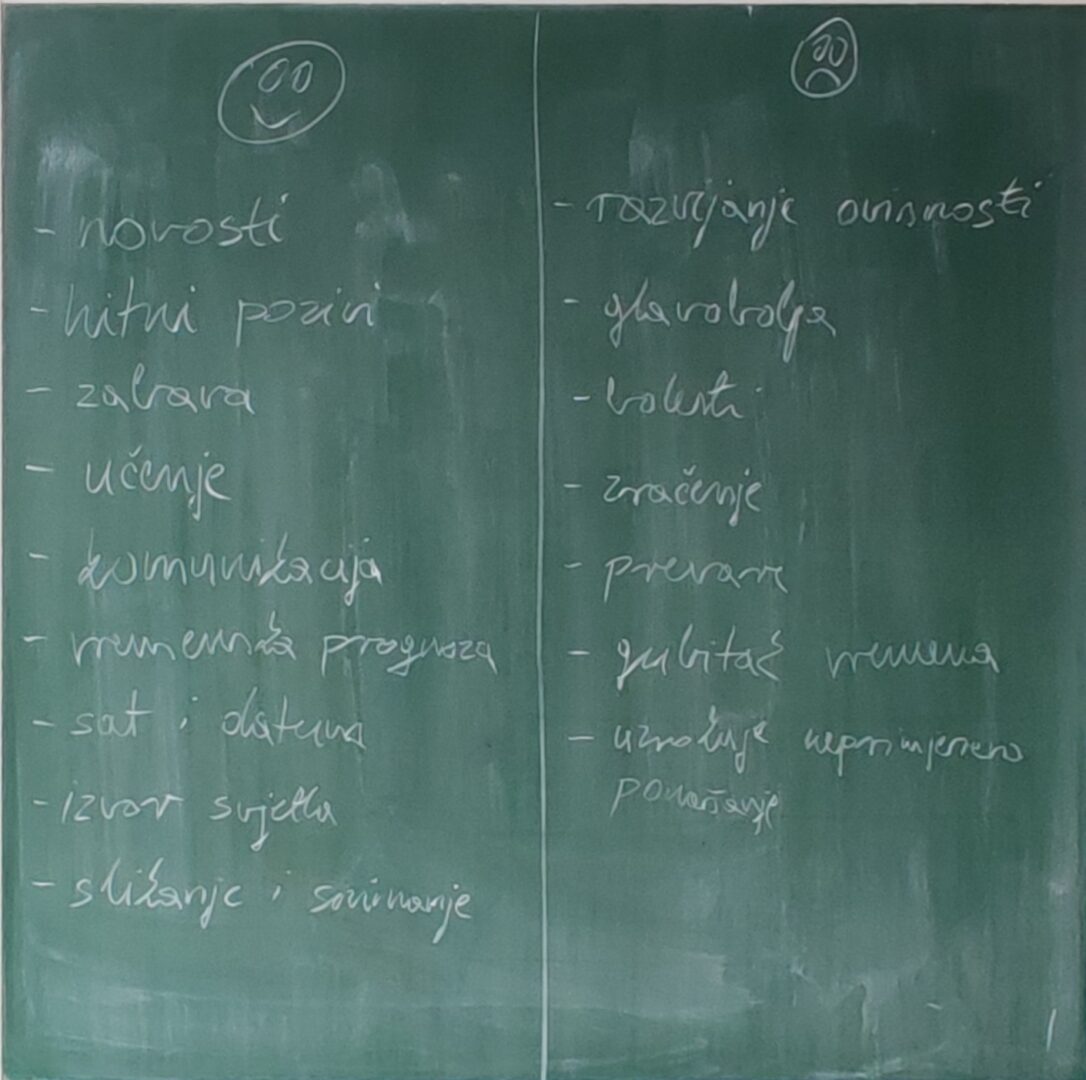 - novosti
- hitni pozivi
- zabava
- učenje
- komunikacija
- vremenska prognoza
- sat i datum
- izvor svjetla
- slikanje i snimanje
- razvijanje ovisnosti
- glavobolja
- bolesti
- zračenje
- prevare
- gubitak vremena
- uzrokuje neprimjereno
ponašanje